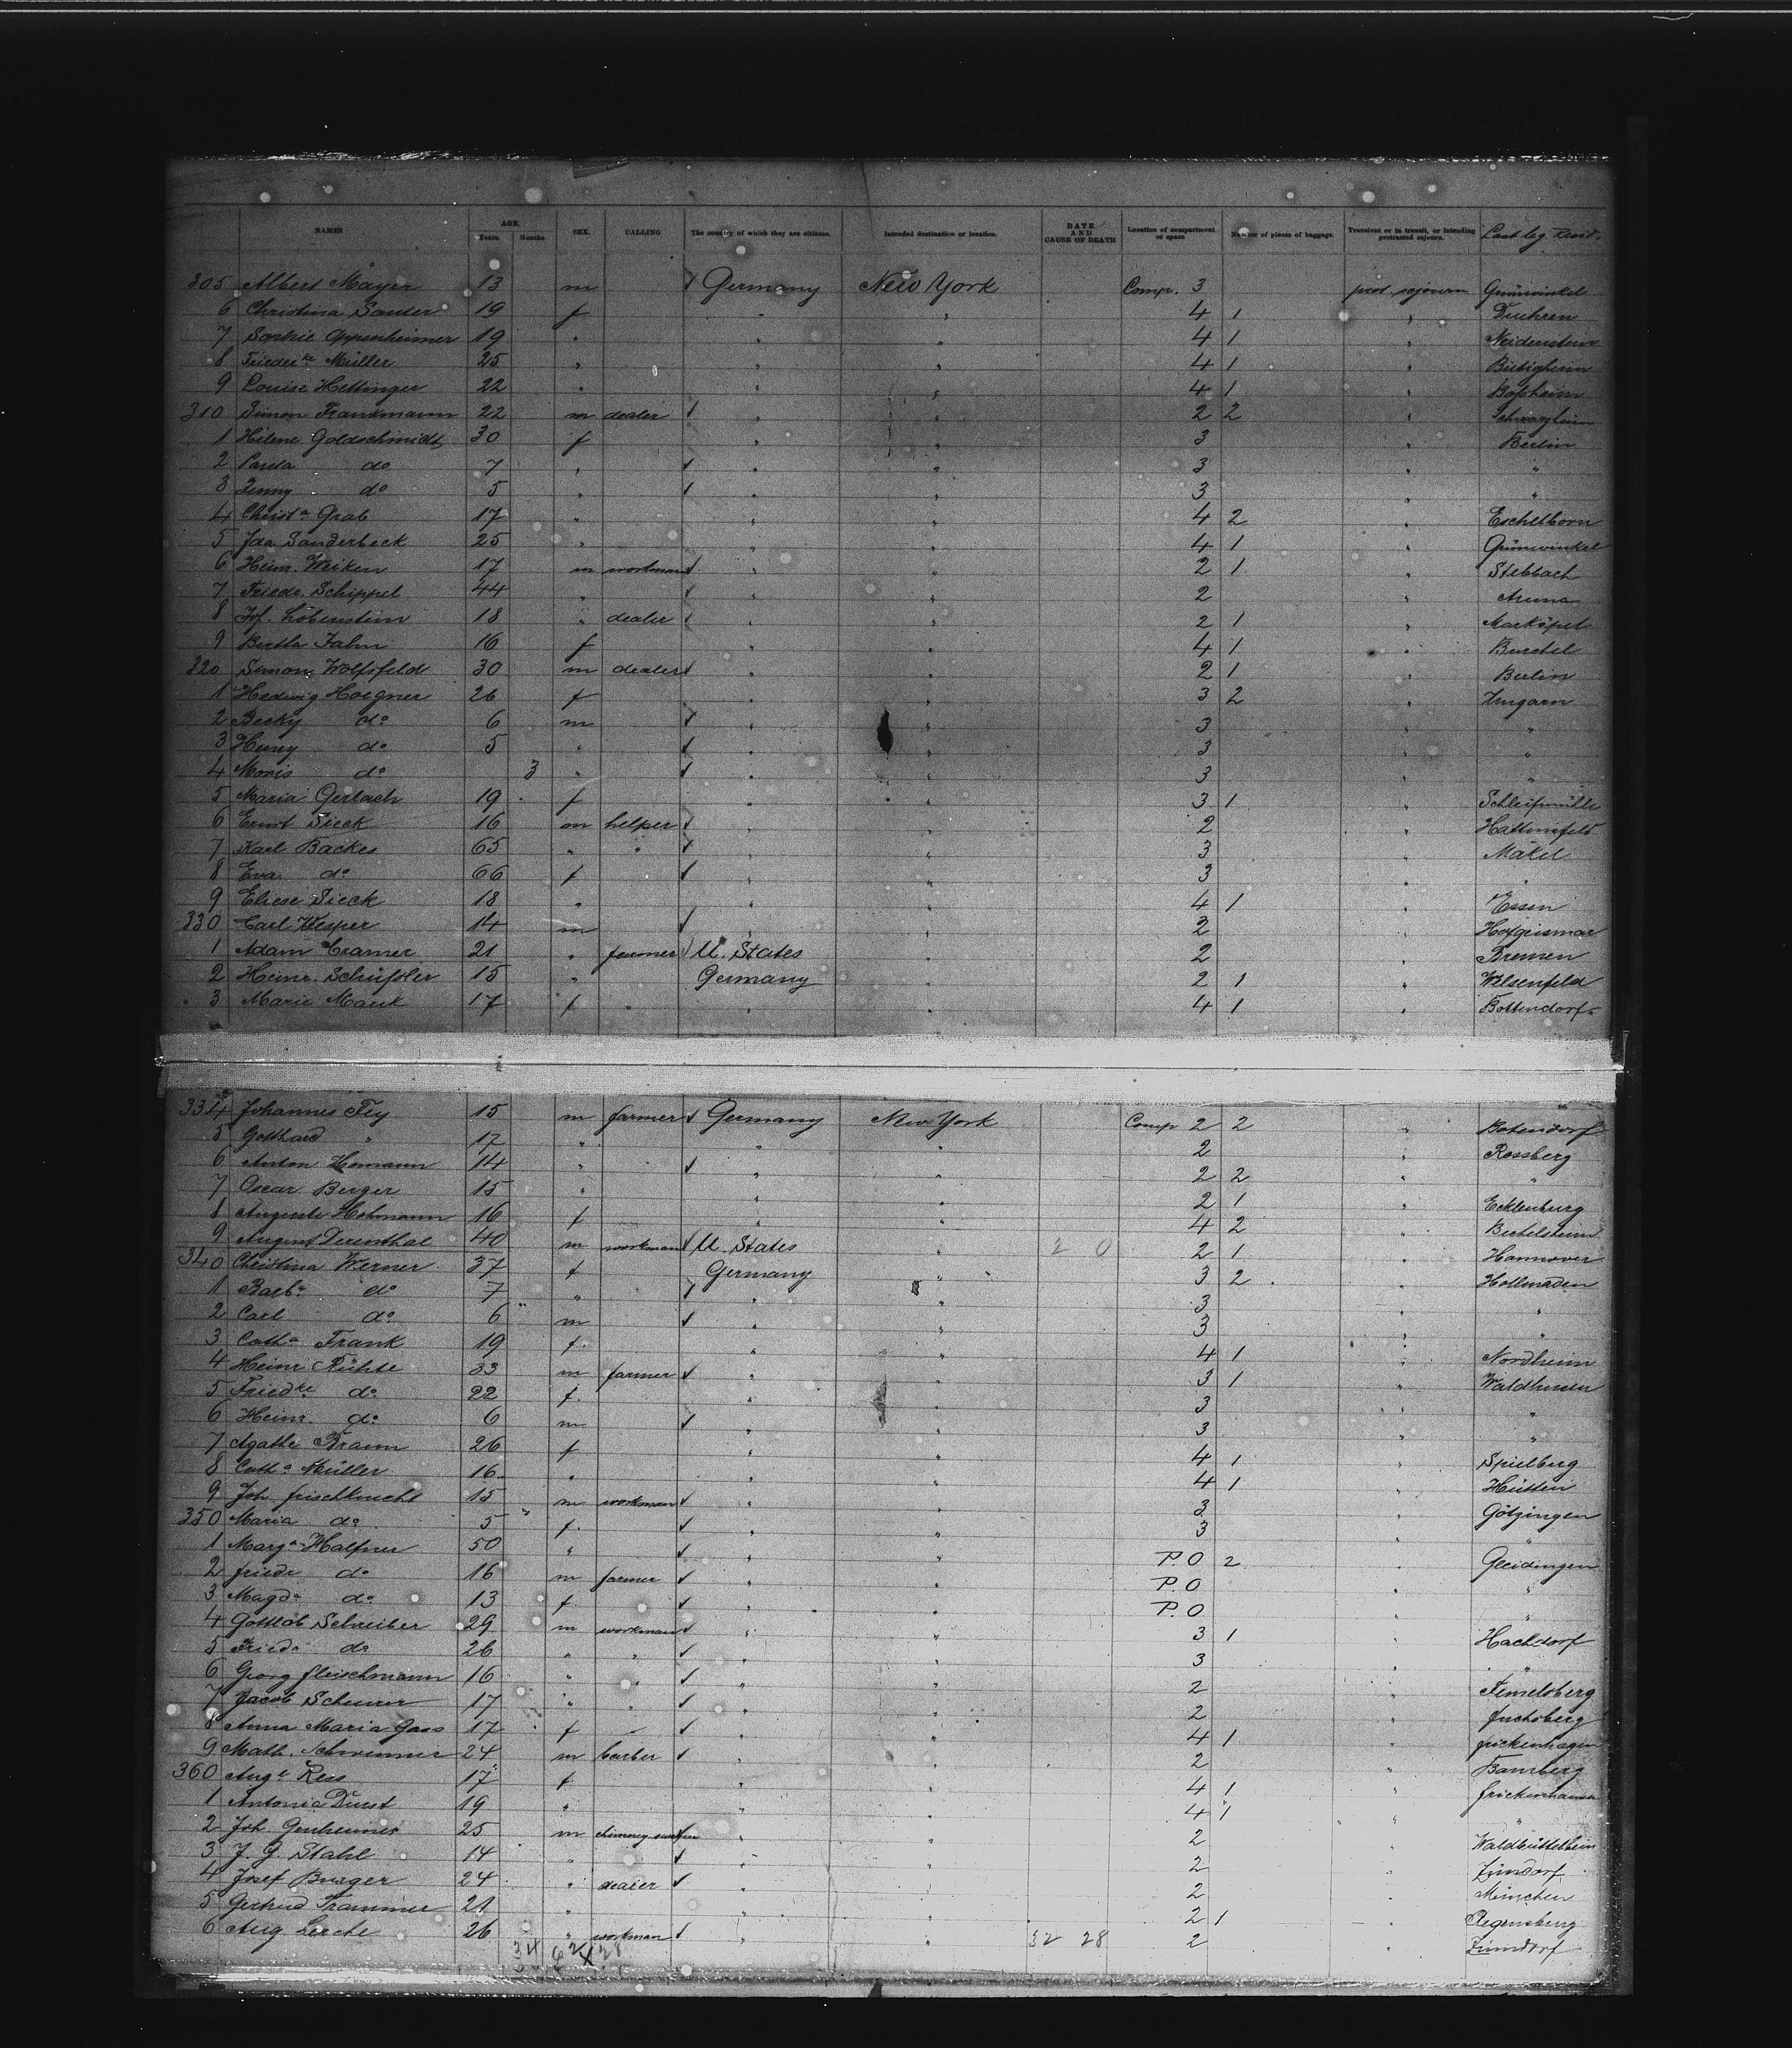 NAMES AGE. Years. Months. SEX. CALLING The country of which they are citizens. Intended destination or location. DATE AND CAUSE OF DEATH Location of compartment or space Number of pieces of baggage. Transient or in transit, or intending protracted sojourn. Last leg. Resid.
305 Albert Mayer 13 m Germany New York Comp. 3 prot. sojourn Grünwinkel
6 Christina Sauter 19 f " " 4 1 " Duehren
7 Sophie Oppenheimer 19 " " " 4 1 " Neidenstein
8 Friederke Müller 25 " " " 4 1 " Bietigheim
9 Louise Hettinger 22 " " " 4 1 "
310 Simon Frankmann 22 m dealer " " 2 2 "
1 Helene Goldschmidt 30 f " " 3 " Berlin
2 Paula do 7 " " " 3 " "
3 Jenny do 5 " " " 3 " "
4 Christa Grab 17 " " " 4 2 " Eschelborn
5 Ida Sanderbeck 25 " " " 4 1 " Grünwinkel
6 Heinr. Weiken 17 m workman " " 2 1 " Stebbach
7 Friedr. Schippel 44 " " " 2 "
8 Jos. Löbenstein 18 " dealer " " 2 1 " Marköpel
9 Bertha Jahn 16 f " " 4 1 " Buchel
320 Simon Wolfsfeld 30 m dealer " " 2 1 " Berlin
1 Hedwig Hoegner 26 f " " 3 2 " Ungarn
2 Becky do 6 m " " 3 " "
3 Henry do 5 " " " 3 " "
4 Moris do 3 " " " 3 " "
5 Maria Gerlach 19 f " " 3 1 " Schleifmühle
6 Ernst Sieck 16 m helper " " 2 " Hattensfeld
7 Karl Backes 65 " " " " 3 " Mäkel
8 Eva do 66 f " " 3 " "
9 Eliese Sieck 18 " " " 4 1 " Essen
330 Carl Wesper 14 m " " 2 " Hofgeismar
1 Adam Cramer 21 " farmer U. States " 2 " Bremen
2 Heinr. Schüssler 15 " Germany " 2 1 " Welsenfeld
3 Marie Mauk 17 f " " " 4 1 " Bottendorf
334 Johannes Fey 15 m farmer Germany New York Comp 2 2 " Botendorf
5 Gotthard " 17 " " " 2 " Rossberg
6 Anton Homann 14 " " " 2 2 " "
7 Oscar Berger 15 " " " 2 1 " Ecklenburg
8 Auguste Hohmann 16 f " " 4 2 " Bechelsheim
9 August Derenthal 40 m workman U. States " 2 0 2 1 " Hannover
340 Christina Werner 37 f Germany " 3 2 " Hollmaden
1 Barba do 7 " " " 3 " "
2 Carl do 6 m " " 3 " "
3 Catha Frank 19 f " " 4 1 " Nordheim
4 Heinr. Rühle 33 m farmer " " 3 1 " Waldhusen
5 Friedke do 22 f " " 3 " "
6 Heinr. do 6 m " " 3 " "
7 Agathe Braun 26 f " " 4 1 " Spielberg
8 Catha Müller 16 " " " 4 1 " Hütten
9 Joh. Frischknecht 15 m workman " " 3 " Götzingen
350 Maria do 5 f " " 3 "
1 Marga Halfner 50 " " " P. O 2 " Gleidingen
2 Friedr do 16 m farmer " " P. O " "
3 Magda do 13 f " " P. O " "
4 Gottlob Schreiber 29 m workman " " 3 1 " Hachdorf
5 Friedr do 26 " " " " 3 " "
6 Georg Fleischmann 16 " " " " 2 " Femelsberg
7 Jacob Scheurer 17 " " " " 2 " Fuchsberg
8 Anna Maria Gass 17 f " " 4 1 " Frickenhagen
9 Math. Schwemmer 24 m barber " " 2 " Bamberg
360 Auge Ress 17 f " " 4 1 " Frickenhausen
1 Antonia Durst 19 " " " 4 1 " "
2 Joh. 25 m chimney sweeper " " 2 " Waldhüttelheim
3 J. G. Stahl 14 " " " 2 " Zirndorf
4 Josef Burger 24 " dealer " " 2 " München
5 Gertrud Trammer 21 " " " 2 1 " Regensburg
6 Aug Lerche 26 " workman " " 32 28 2 " Zirndorf
34 62 X 28